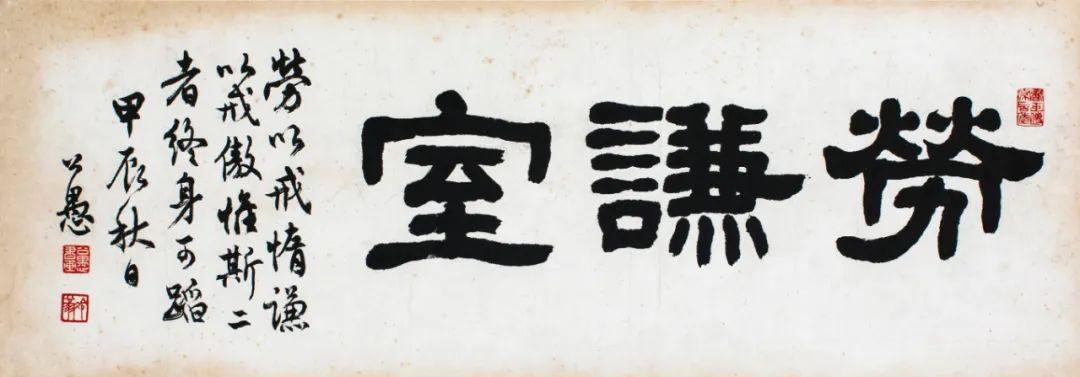 勞謙室
勞以戒惰謙
以戒傲惟斯二
者終身可蹈
甲辰秋日
公愚